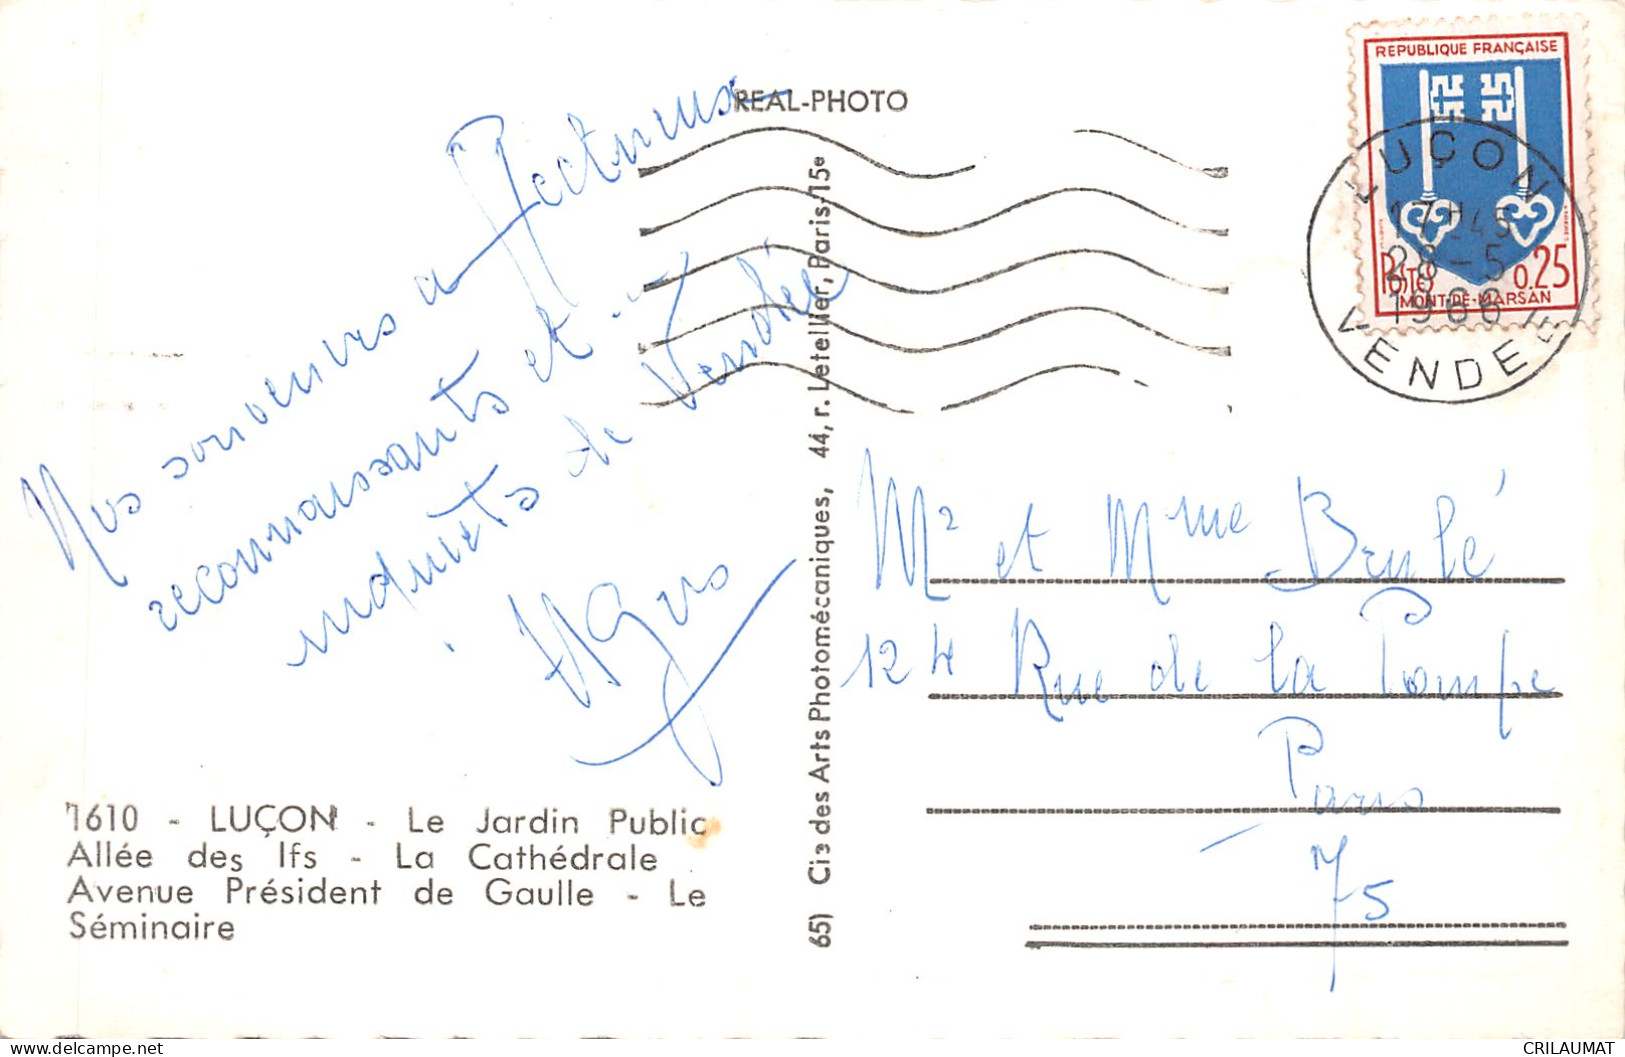 REAL-PHOTO
Nos souvenirs affectueux
reconnaissants et
inquiets de Vendée
1610 - LUÇON - Le Jardin Public
Allée des Ifs - La Cathédrale
Avenue Président de Gaulle - Le
Séminaire
65) Cie des Arts Photomécaniques, 44, r. Letellier, Paris-15e
REPUBLIQUE FRANÇAISE
Postes 0.25
MONT-DE-MARSAN
LUÇON
17H45
28-5
1966
VENDEE
Mr et Mme Brulé
124 Rue de la Pompe
Paris
75
CRILAUMAT